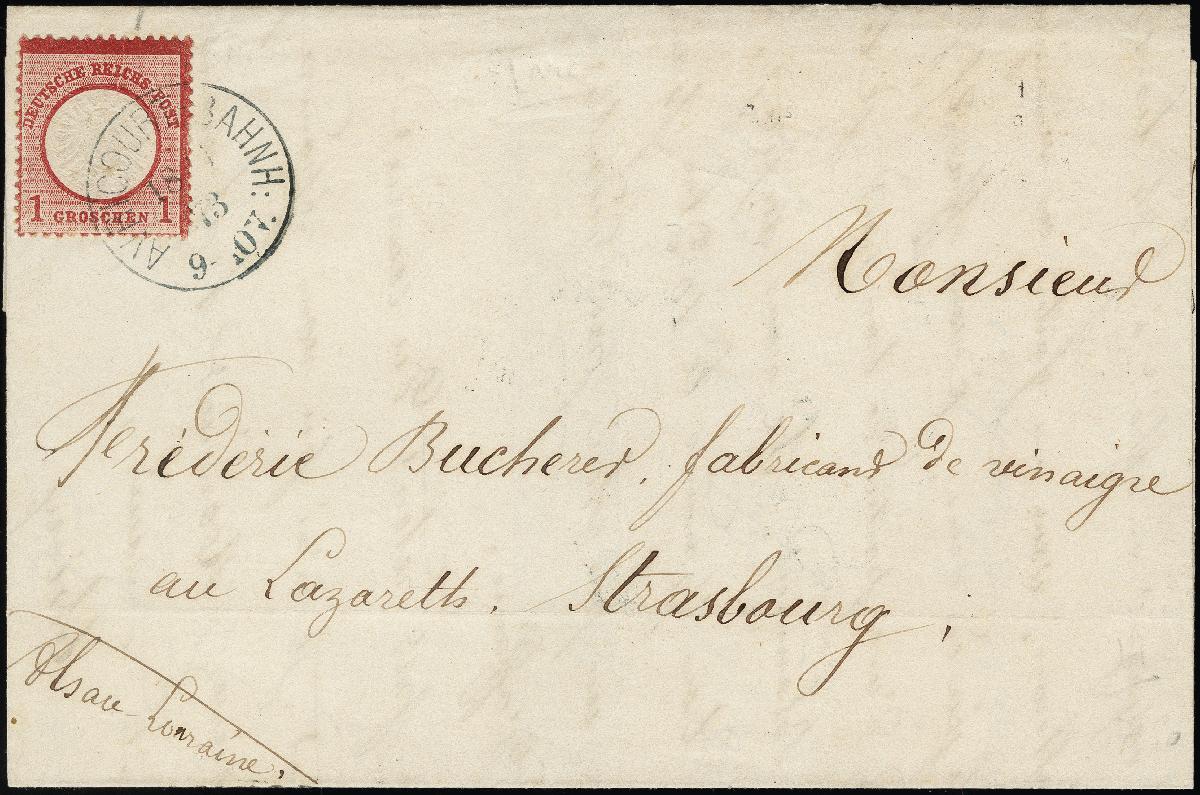 DEUTSCHE REICHS-POST
1 GROSCHEN 1
AVRICOURT BAHNH.
18
73
9-10V.
Monsieur
Fréderic Bucherer, fabricant de vinaigre
au Lazareth. Strasbourg,
Alsace-Lorraine.